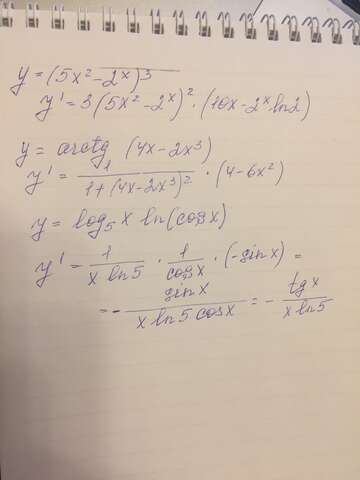 y = (5x² - 2ˣ)³
y' = 3(5x² - 2ˣ)² · (10x - 2ˣ ln2)
y = arctg (4x - 2x³)
y' = 1/(1 + (4x - 2x³)²) · (4 - 6x²)
y = log₅ x ln(cosx)
y' = 1/(x ln5) · 1/cosx · (-sinx) =
= - sinx/(x ln5 cosx) = - tgx/(x ln5)